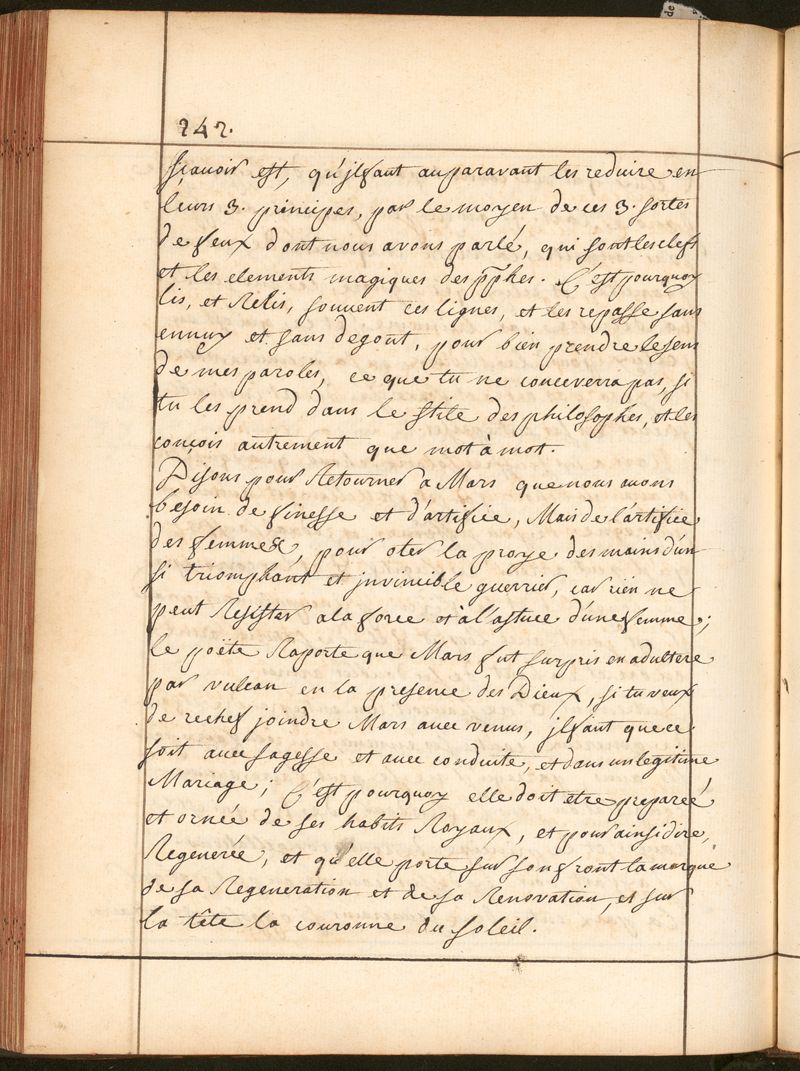 242.
sçauoir est, qu'jlfaut auparavant les reduire en
leurs 3. principes, par le moyen de ces 3. sortes
de feux dont nous avons parlé, qui sont les clefs
et les elements magiques des pphes. C'est pourquoy
lis, et Relis, souuent ces lignes, et les repasse sans
ennuy et sans degout, pour bien prendre le sens
de mes paroles, ce que tu ne conceverra pas, si
tu les prend dans le stile des philosophes, et les
conçois autrement que mot à mot.
Disons pour Retourner a Mars que nous auons
besoin de finesse et d'artifice, Mais de l'artifice
des femmes, pour oter la proye des mains d'un
si triomphant et jnvincible guerrier, car rien ne
peut Resister a la force et à l'astuce d'une femme;
le poëte Raporte que Mars fut surpris en adultere
par vulcan en la presence des Dieux, si tu veux
de rechef joindre Mars auec venus, jlfaut que ce
soit auec sagesse et auec conduite, et dans un legitime
Mariage; C'est pourquoy elle doit etre preparée
et ornée de ses habits Royaux, et pour ainsi dire,
Regenerée, et qu'elle porte sur son front la marque
de sa Regeneration et de sa Renovation, et sur
la tête la couronne du soleil.